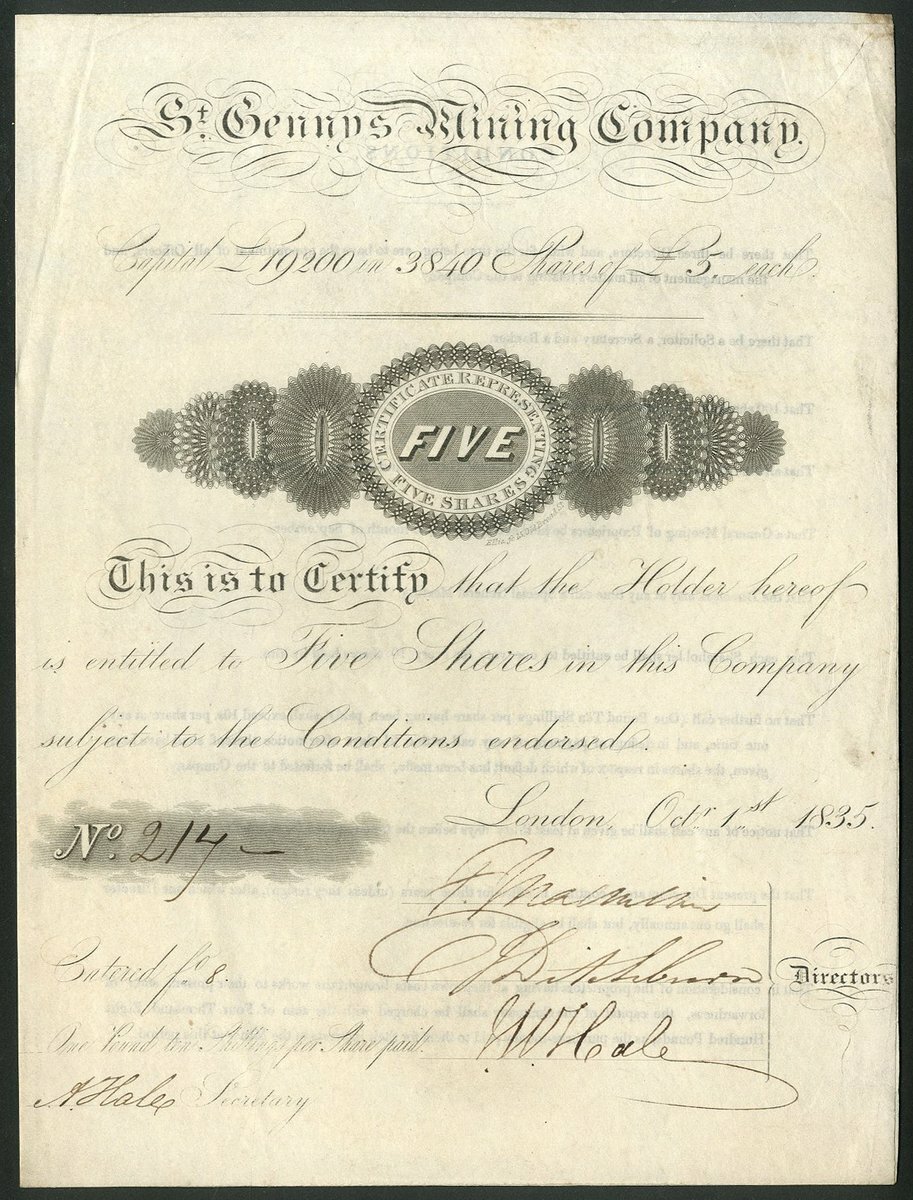 St. Gennys Mining Company.
Capital £19200 in 3840 Shares of £5, each.
CERTIFICATE REPRESENTING
FIVE
FIVE SHARES
This is to Certify that the Holder hereof
is entitled to Five Shares in this Company
subject to the Conditions endorsed.
London, Octr. 1st 1835.
No. 217 —
Ditchburn
Directors
Entered fo. 8.
One Pound ten Shillings per Share paid.
J.W. Hale
A. Hale Secretary